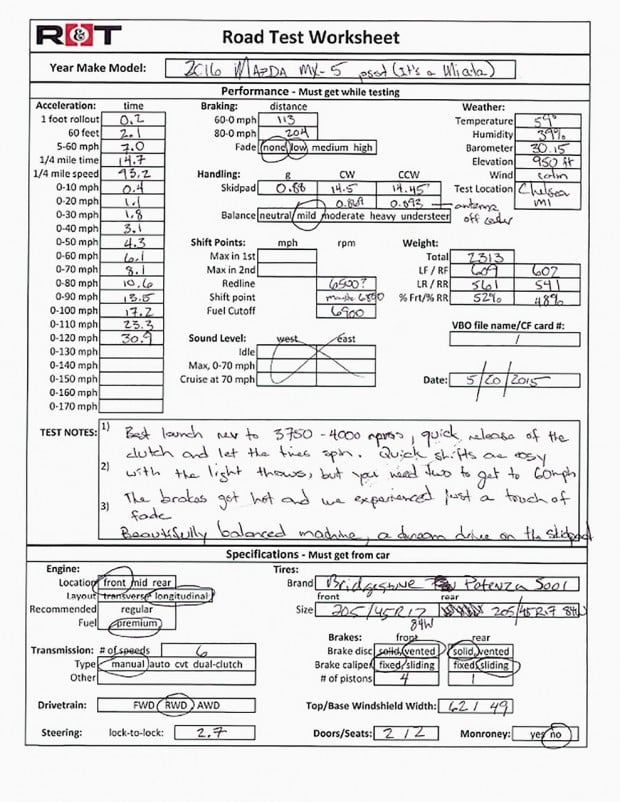 R&T Road Test Worksheet
Year Make Model: 2016 MAZDA MX-5 psst (It's a Miata)
Performance - Must get while testing
Acceleration: time Braking: distance Weather:
1 foot rollout 0.2 60-0 mph 113 Temperature 59°
60 feet 2.1 80-0 mph 204 Humidity 39%
5-60 mph 7.0 Fade none low medium high Barometer 30.15
1/4 mile time 14.7 Elevation 950 ft
1/4 mile speed 93.2 Handling: g CW CCW Wind calm
0-10 mph 0.4 Skidpad 0.88 14.5 14.45 Test Location Chelsea MI
0-20 mph 1.1 0.893
0-30 mph 1.8 Balance neutral mild moderate heavy understeer antenna off
0-40 mph 3.1
0-50 mph 4.3 Shift Points: mph rpm Weight:
0-60 mph 6.1 Max in 1st Total 2313
0-70 mph 8.1 Max in 2nd LF / RF 609 602
0-80 mph 10.6 Redline 6500? LR / RR 561 541
0-90 mph 13.5 Shift point maybe 6800 % Frt/% RR 52% 48%
0-100 mph 17.2 Fuel Cutoff 6900
0-110 mph 23.3 VBO file name/CF card #:
0-120 mph 30.9 Sound Level: west east /
0-130 mph Idle
0-140 mph Max, 0-70 mph
0-150 mph Cruise at 70 mph Date: 5/20/2015
0-160 mph
0-170 mph
TEST NOTES: 1) Best launch rev to 3750-4000 rpms, quick release of the
clutch and let the tires spin. Quick shifts are easy
2) with the light throws, but you need two to get to 60mph
3) The brakes got hot and we experienced just a touch of
fade
Beautifully balanced machine, a dream drive on the skidpad
Specifications - Must get from car
Engine: Tires:
Location front mid rear Brand Bridgestone Potenza S001
Layout transverse longitudinal front rear
Recommended regular Size 205/45R17 84W 205/45R17 84W
Fuel premium
Brakes: front rear
Transmission: # of speeds 6 Brake disc solid, vented solid, vented
Type manual auto cvt dual-clutch Brake caliper fixed/sliding fixed/sliding
Other # of pistons 4 1
Drivetrain: FWD RWD AWD Top/Base Windshield Width: 62 / 49
Steering: lock-to-lock: 2.7 Doors/Seats: 2 / 2 Monroney: yes no